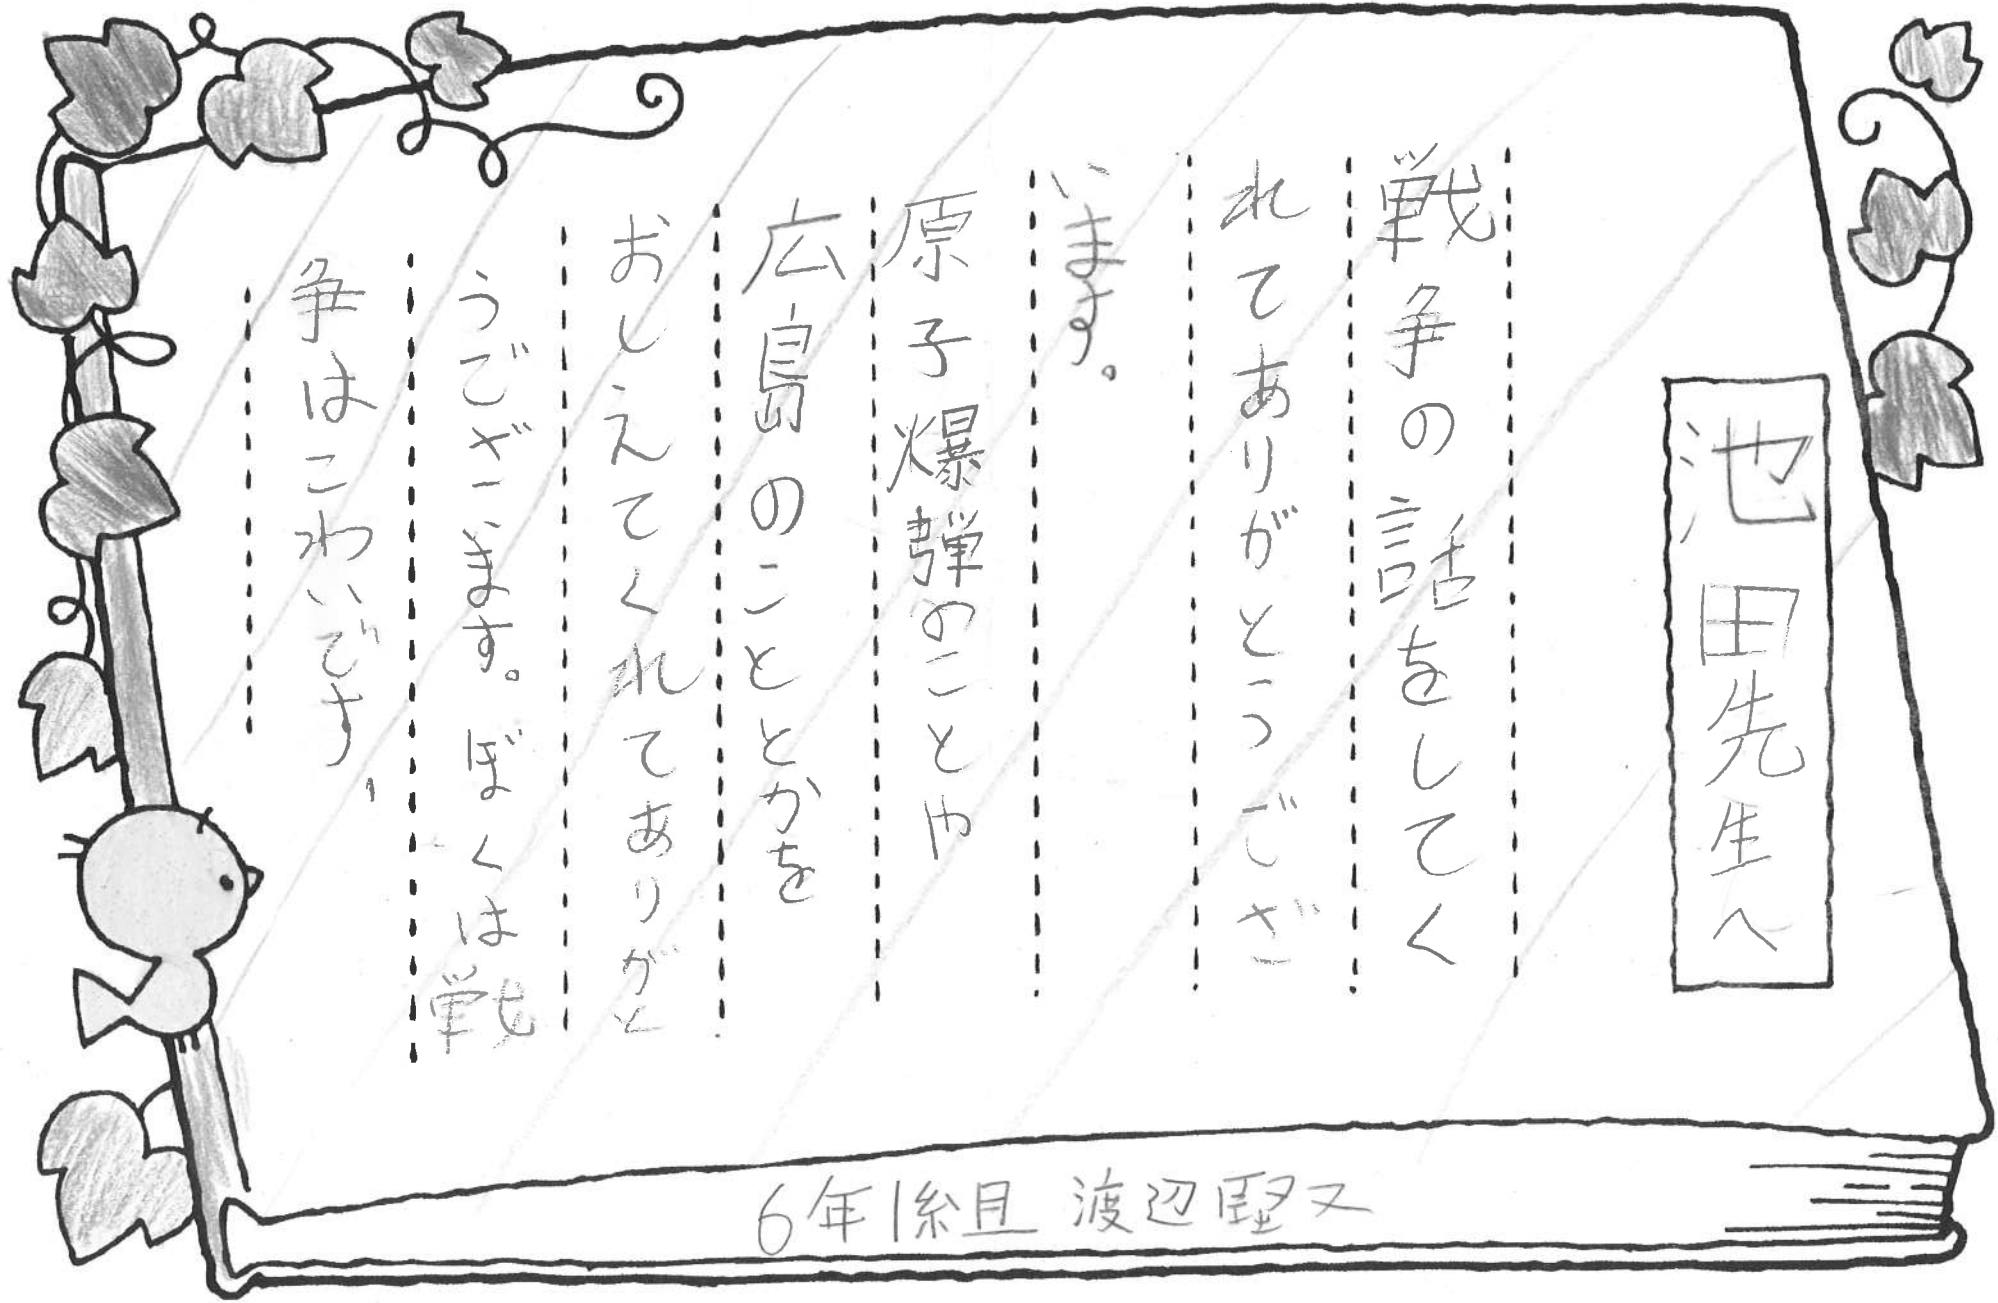 池田先生へ
戦争の話をしてく
れてありがとうござ
います。
原子爆弾のことや
広島のこととかを
おしえてくれてありがと
うございます。ぼくは戦
争はこわいです。
6年1組 渡辺堅又